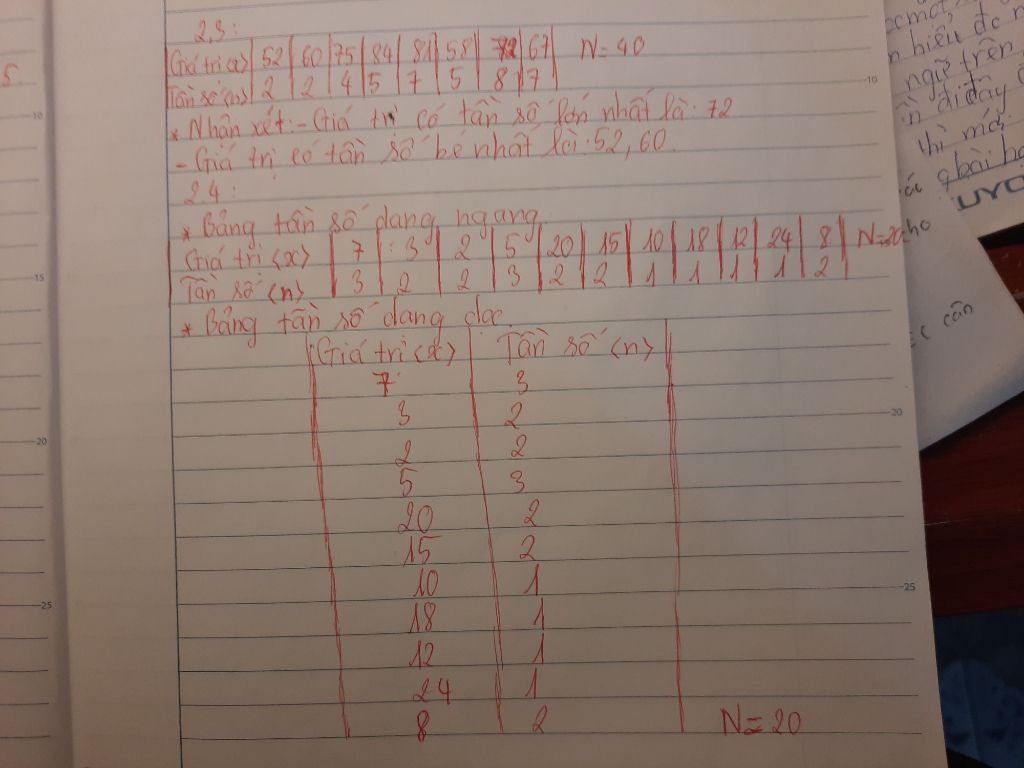 5.
2.3:
Giá trị (x) 52 60 75 84 81 58 72 67 N=40
Tần số (n) 2 2 4 5 7 5 8 7
* Nhận xét: - Giá trị có tần số lớn nhất là: 72
- Giá trị có tần số bé nhất là: 52, 60.
2.4:
* Bảng tần số dạng ngang
Giá trị (x) 7 3 2 5 20 15 10 18 12 24 8 N=20
Tần số (n) 3 2 2 3 2 2 1 1 1 1 2
* Bảng tần số dạng dọc
Giá trị (x) Tần số (n)
7 3
3 2
2 2
5 3
20 2
15 2
10 1
18 1
12 1
24 1
8 2 N=20
10
15
20
25
10
20
25
hiểu
ngữ trên
đi đây
thì mới
bài
UYO
cho
cần